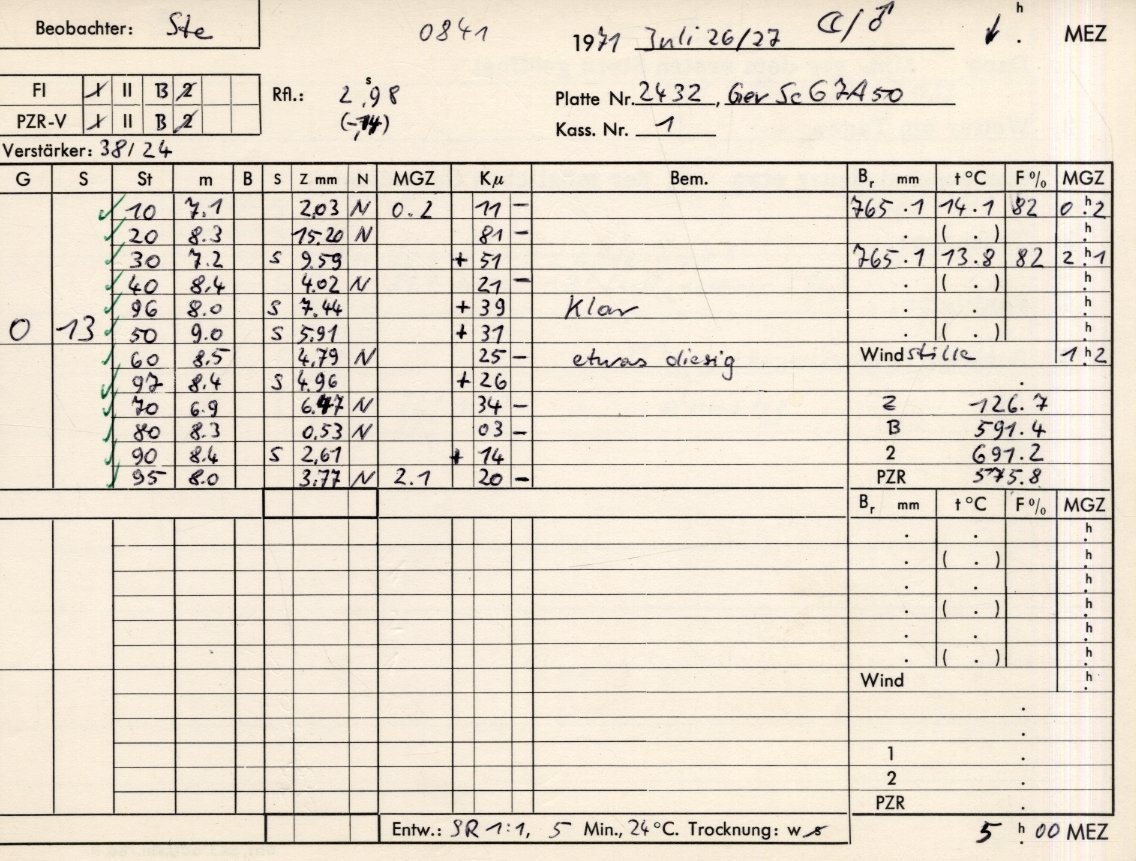 Beobachter: Ste 0841 1971 Juli 26/27 h . MEZ
FI I II B 2 Rfl.: 2,98 s Platte Nr. 2432, Gev Sc 67A50
PZR-V I II B 2 (-14) Kass. Nr. 1
Verstärker: 38/24
G S St m B S Z mm N MGZ Kµ Bem. Br mm t °C F% MGZ
10 7.1 2,03 N 0.2 11 - 765.1 14.1 82 0 h 2
20 8.3 15.20 N 81 - . ( . ) h
30 7.2 S 9.59 + 51 765.1 13.8 82 2 h 1
40 8.4 4.02 N 21 - . ( . ) h
96 8.0 S 7.44 + 39 Klar . . h
0 13 50 9.0 S 5.91 + 31 . ( . ) h
60 8.5 4,79 N 25 - etwas diesig Windstille 1 h 2
97 8.4 S 4.96 + 26 .
70 6.9 6.47 N 34 - Z 126.7
80 8.3 0,53 N 03 - B 591.4
90 8.4 S 2,61 + 14 2 691.2
95 8.0 3.77 N 2.1 20 - PZR 575.8
Br mm t °C F% MGZ
. . h
. ( . ) h
. . h
. ( . ) h
. . h
. ( . ) h
Wind h
.
.
1 .
2 .
PZR .
Entw.: SR 1:1, 5 Min., 24 °C. Trocknung: w s 5 h 00 MEZ